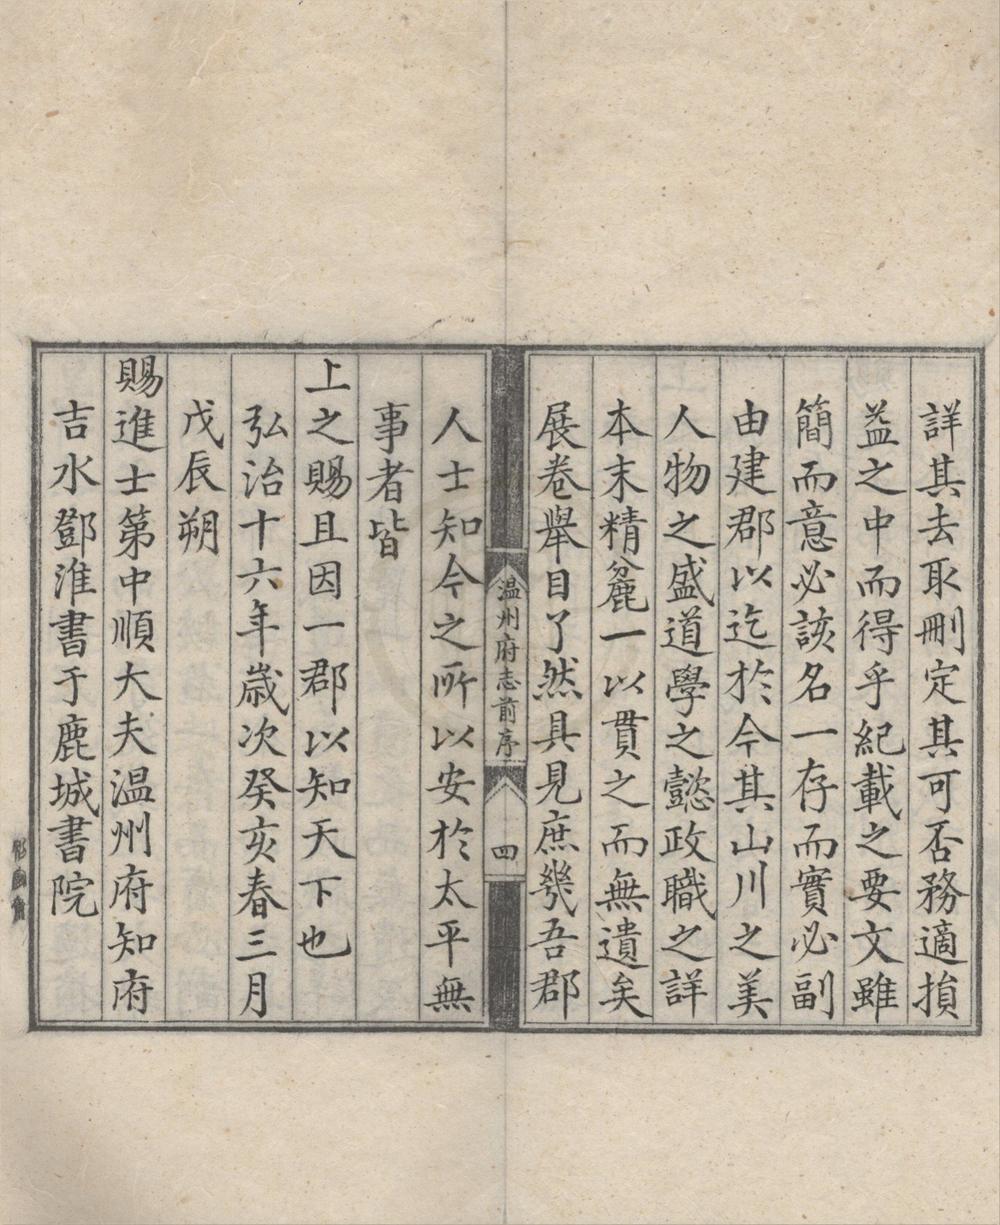 詳其去取刪定其可否務適損
益之中而得乎紀載之要文雖
簡而意必該名一存而實必副
由建郡以迄於今其山川之美
人物之盛道學之懿政職之詳
本末精麄一以貫之而無遺矣
展卷舉目了然具見庶幾吾郡
温州府志前序
四
人士知今之所以安於太平無
事者皆
上之賜且因一郡以知天下也
弘治十六年歲次癸亥春三月
戊辰朔
賜進士第中順大夫温州府知府
吉水鄧淮書于鹿城書院